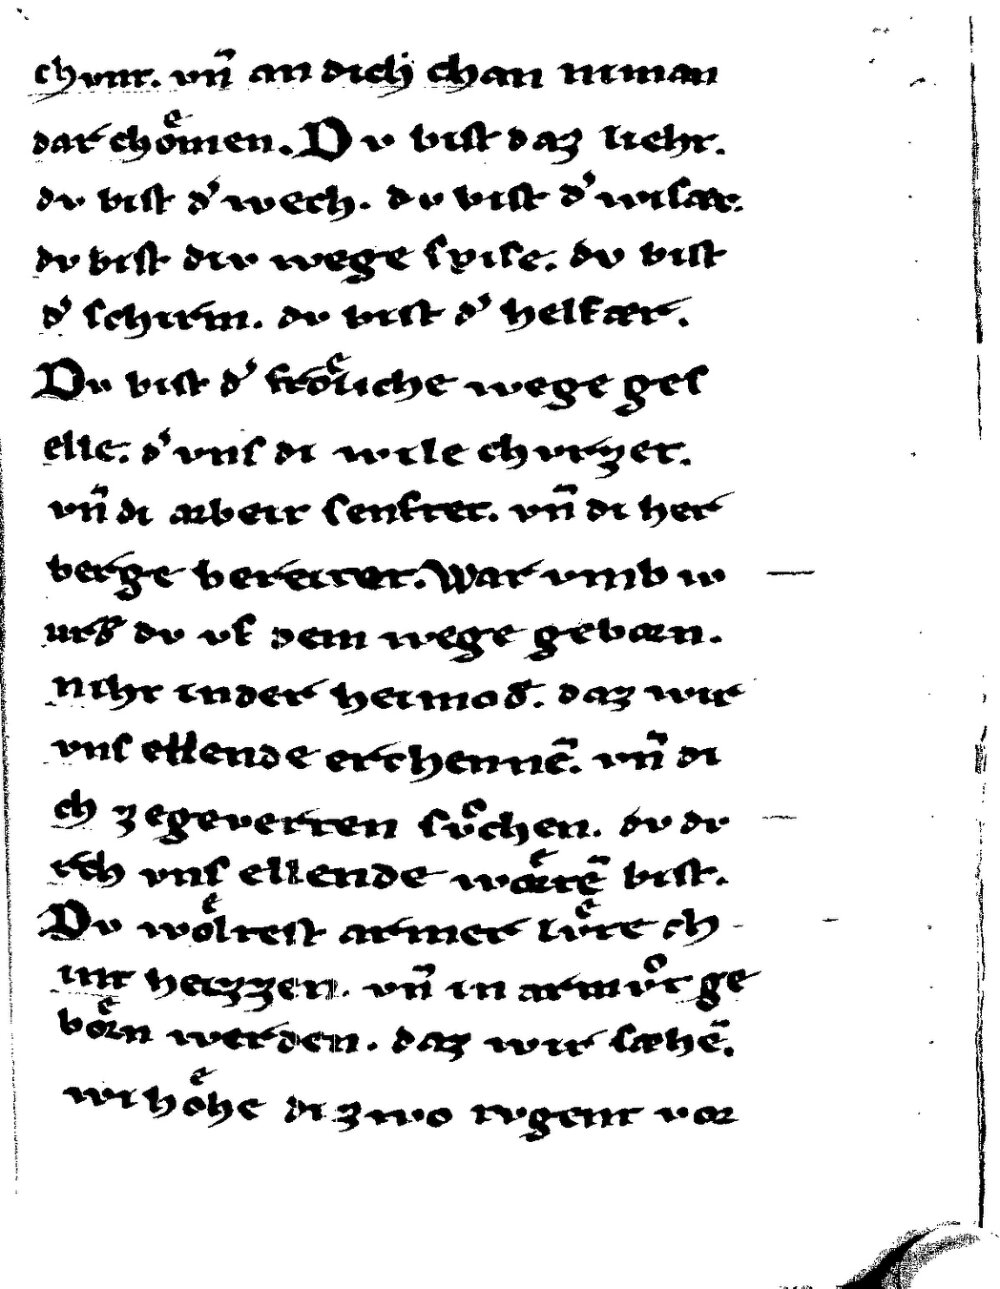 chvnt. vn̄ an dich chan nıman
dar choͤmen. Dv bist daz lieht.
dv bist dʼ wech. dv bist dʼ wisær.
dv bist div wege spise. dv bist
dʼ schirm. dv bist dʼ helfær.
Dv bist dʼ froͤliche wege ges
elle. dʼ vns di wile chvrzet.
vn̄ di arbeit senftet. vn̄ di her
berge bereitet. War vmb w
urd̓ dv vf dem wege geborn.
niht in der heimod̓. daz wir
vns ellende erchennē. vn̄ di
ch zegeverten svͦchen. dv dv
rch vns ellende worͤtē bist.
Dv woͤltest armer lvͤte ch
int heizzen. vn̄ in armvͦt ge
boͤrn werden. daz wir sæhē.
wi hoͤhe di zwo tvgent vor